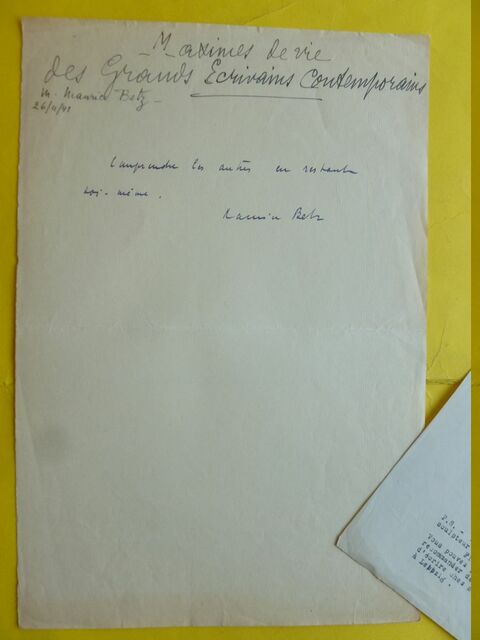 Maximes de vie
des Grands Ecrivains Contemporains
M. Maurice Betz -
26/4/41
Comprendre les autres en restant
soi-même.
Maurice Betz
P.S. -
sculpteur
Vous pouvez
recommander
d'écrire